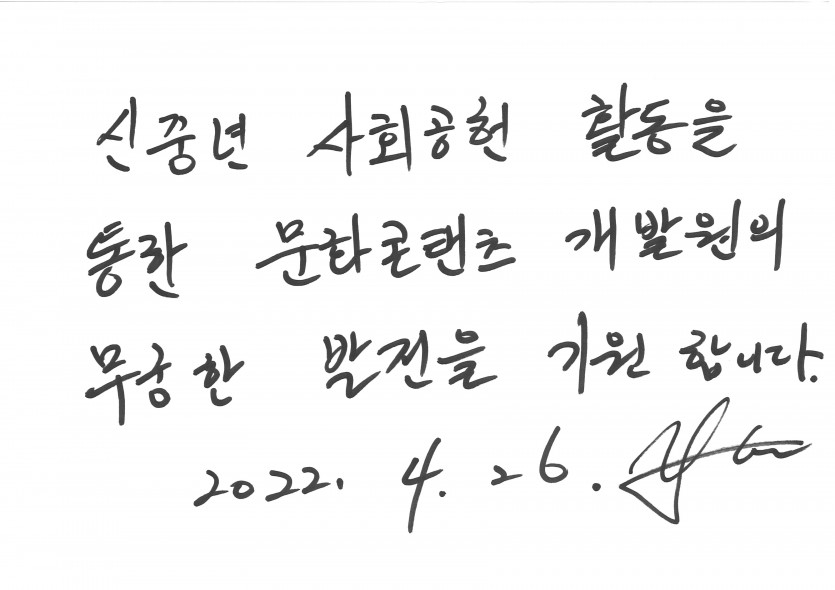 신중년 사회공헌 활동을
통한 문화콘텐츠 개발원의
무궁한 발전을 기원 합니다.
2022. 4. 26.